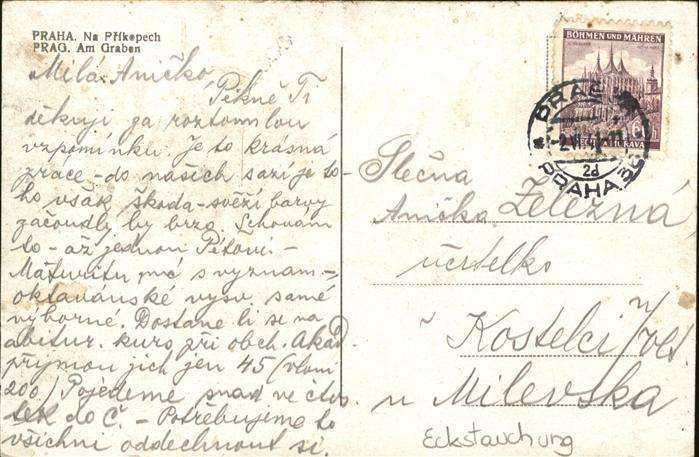 PRAHA. Na Příkopech
PRAG. Am Graben
Milá Aničko,
Pěkně Ti
děkuji za roztomilou
vzpomínku. Je to krásná
práce - do našich sazí je to-
ho však škoda - svěží barvy
začoudly by brzo. Schovám
to - až jednou Péťovi. -
Máťu
mé vyznam-
oktavánské vysv. samé
výborné. Dostane li se na
abitur. kurs při obch. Akad.
přijmou jich jen 45 (vloni
200) Pojedeme snad ve čtvr-
tek do Č. - Potřebujeme to
všichni oddechnout si.
BÖHMEN UND MÄHREN
ČECHY A MORAVA
60
PRAG
2d
PRAHA
Slečna
Anička Železná,
učitelka
v Kostelci n/Vlt
u Milevska
Eckstauchung